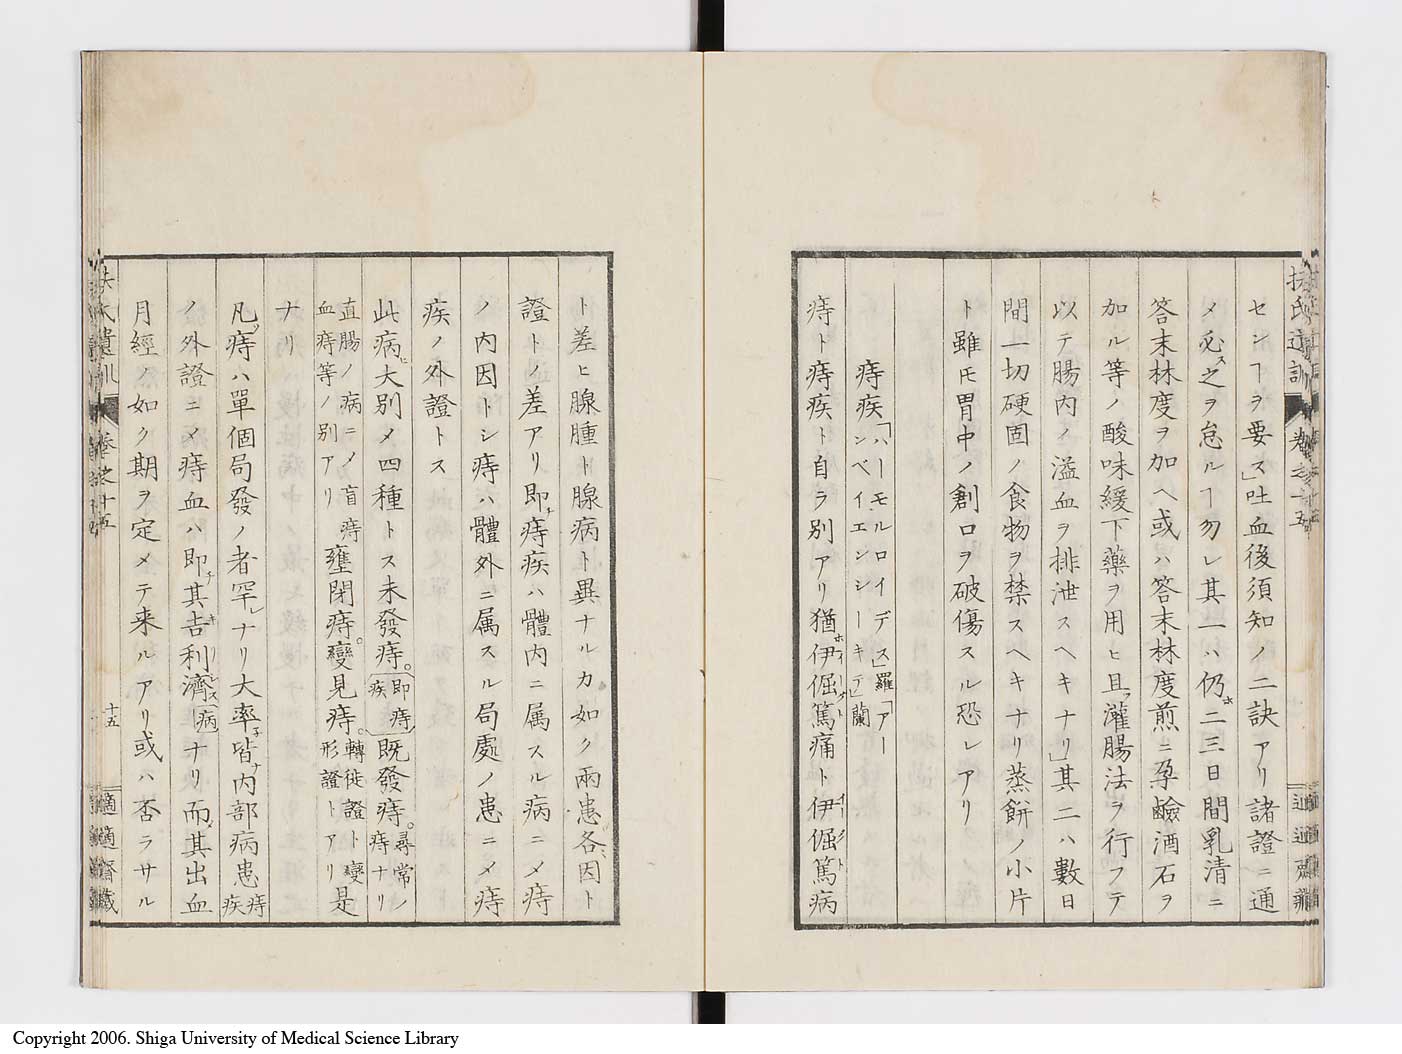 センヿヲ要ス」吐血後須知ノ二訣アリ諸證ニ通
メ必ス之ヲ怠ルヿ勿レ其一ハ仍ホ二三日間乳清ニ
答末林度ヲ加ヘ或ハ答末林度煎ニ孕鹼酒石ヲ
加ル等ノ酸味緩下藥ヲ用ヒ且ツ灌腸法ヲ行フテ
以テ腸内ノ溢血ヲ排泄スヘキナリ」其二ハ數日
間一切硬固ノ食物ヲ禁スヘキナリ蒸餅ノ小片
ト雖モ胃中ノ創口ヲ破傷スル恐レアリ
痔疾「ハーモルロイデス」羅「アー
ンベイエンシーキテ」蘭
痔ト痔疾ト自ラ別アリ猶伊倔篤痛ト伊倔篤病
ト差ヒ腺腫ト腺病ト異ナルカ如ク兩患各因ト
證トノ差アリ即チ痔疾ハ體内ニ属スル病ニメ痔
ノ内因トシ痔ハ體外ニ属スル局處ノ患ニメ痔
疾ノ外證トス
此病ニ大別メ四種トス未發痔。即痔疾既發痔。尋常ノ痔ナリ
直腸ノ病ニメ盲痔血痔等ノ別アリ壅閉痔。變見痔。轉徙證ト變形證トアリ是
ナリ
凡ソ痔ハ單個局發ノ者罕レナリ大率子皆ナ内部病患痔疾
ノ外證ニメ痔血ハ即チ其吉利濟病ナリ而メ其出血
月經ノ如ク期ヲ定メテ来ルアリ或ハ否ラサル
扶氏遺訓
卷之十五
十五
適適齋藏
Copyright 2006. Shiga University of Medical Science Library